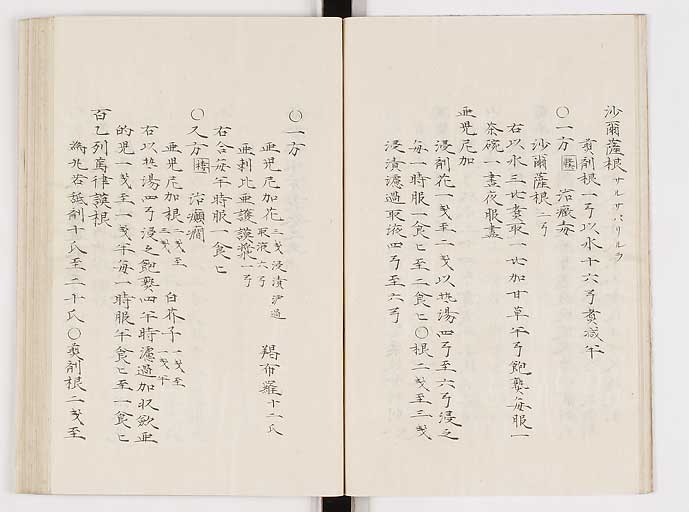 沙爾薩根 サルサパリルラ
煑劑根一弓以水十六弓煑减半
〇一方 治癥毒
沙爾薩根 二弓
右以水三比煑取一比加甘草半弓飽龑每服一
茶碗一晝夜服盡
亜児尼加
浸劑花一戔至二戔以热湯四弓至六弓浸之
每一時服一食匕至二食匕〇根二戔至三戔
浸漬濾過取液四弓至六弓
〇一方
亜児尼加花 三戔浸漬沪過取液六弓 羯布羅 十二氏
亜剌比亜護謨漿 一弓
右合每半時服一食匕
〇又方 治癲癇
亜児尼加根 二戔至三戔 白芥子 一戔至一戔半
右以热湯四弓浸之飽龑四半時濾過加収歛亜
的児一戔至一戔半每一時服半食匕至一食匕
百乙列萬律謨根
為兆若舐劑十氏至二十氏〇煑劑根二戔至